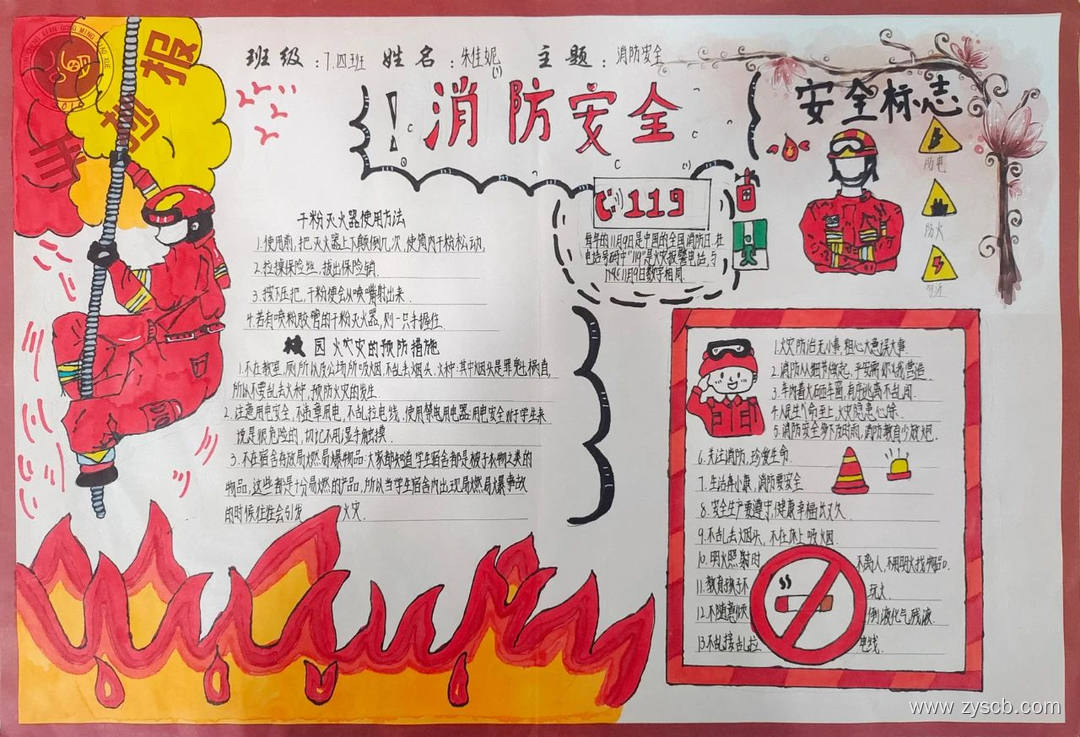 手抄报
班级：7.四班 姓名：朱佳妮 主题：消防安全
！消防安全
安全标志
防电
防火
119
每年的11月9日是中国的全国消防日，在
电话号码中"119"是火灾报警电话，与
11月9日数字相同
干粉灭火器使用方法
1.使用前，把灭火器上下颠倒几次，使筒内干粉松动．
2.拉操保险性，拔出保险销．
3.按下压把，干粉便会从喷嘴射出来．
4.若有喷粉胶管的干粉灭火器，则一只手握住
校园火灾的预防措施
1.不在教室，厕所以及公场所吸烟，不乱丢烟头，火种；其中烟头是罪魁祸首，
所以不要乱丢火种，预防火灾的发生．
2.注意用电安全，不违章用电，不乱拉电线，使用禁电用电器：用电安全对于学生来
说是很危险的，切记不用湿手触摸．
3.不在宿舍存放易燃易爆物品：大家都知道学生宿舍都是被子衣物之来的
物品，这些都是十分易燃的产品，所以当学生宿舍内出现易燃易爆事故
的时候往往会引发 火灾．
1.火灾防治无小事，粗心大意误大事．
2.消防从细节做起，平安需你我营造．
5.消防安全 及时雨，消防教育少放炮．
6.关注消防，珍爱生命．
7.生活奔小康，消防要安全
8.安全生产要遵守，健康幸福长又久．
9.不乱丢烟头，不在床上吸烟．
10.明火照射时 不离人，不用明火找物品．
11.教育孩子不 玩火
12.不随意倾 倒液化气残液．
13.不乱接乱拉 电线．
www.zyscb.com